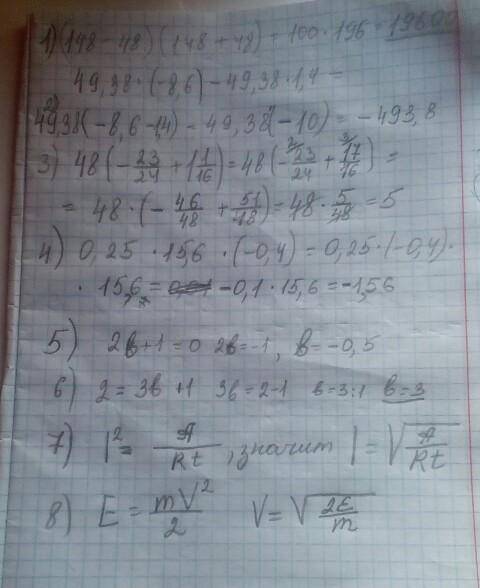 1) (148 - 48) (148 + 48) = 100 · 196 = 19600
49,38 · (-8,6) - 49,38 · 1,4 =
2) 49,38(-8,6 - 1,4) = 49,38(-10) = -493,8
3) 48(-23/24 + 1 1/16) = 48(-23/24 + 17/16) =
= 48 · (-46/48 + 51/48) = 48 · 5/48 = 5
4) 0,25 · 15,6 · (-0,4) = 0,25 · (-0,4) ·
· 15,6 = -0,1 · 15,6 = -1,56
5) 2в+1=0 2в=-1, в=-0,5
6) 2 = 3в +1 3в=2-1 в=3:1 в=3
7) I² = A/Rt, значит I = √A/Rt
8) E = mV²/2 V = √2E/m